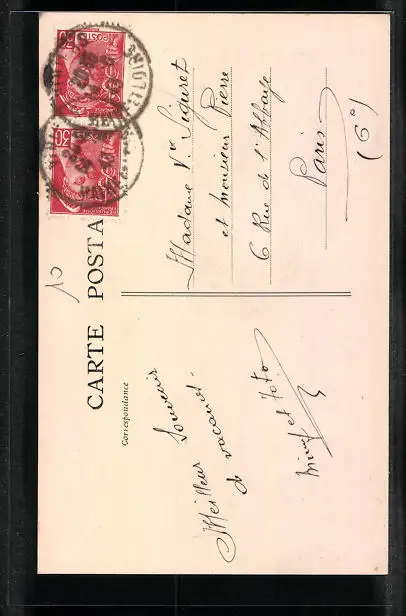 CARTE POSTA
Correspondance
Meilleur
Souvenir
de vacances.
et Toto
Madame Vve Seguret
et Monsieur Pierre
6 Rue de l'Abbaye
Paris
(6e)
10
POSTES
30
30